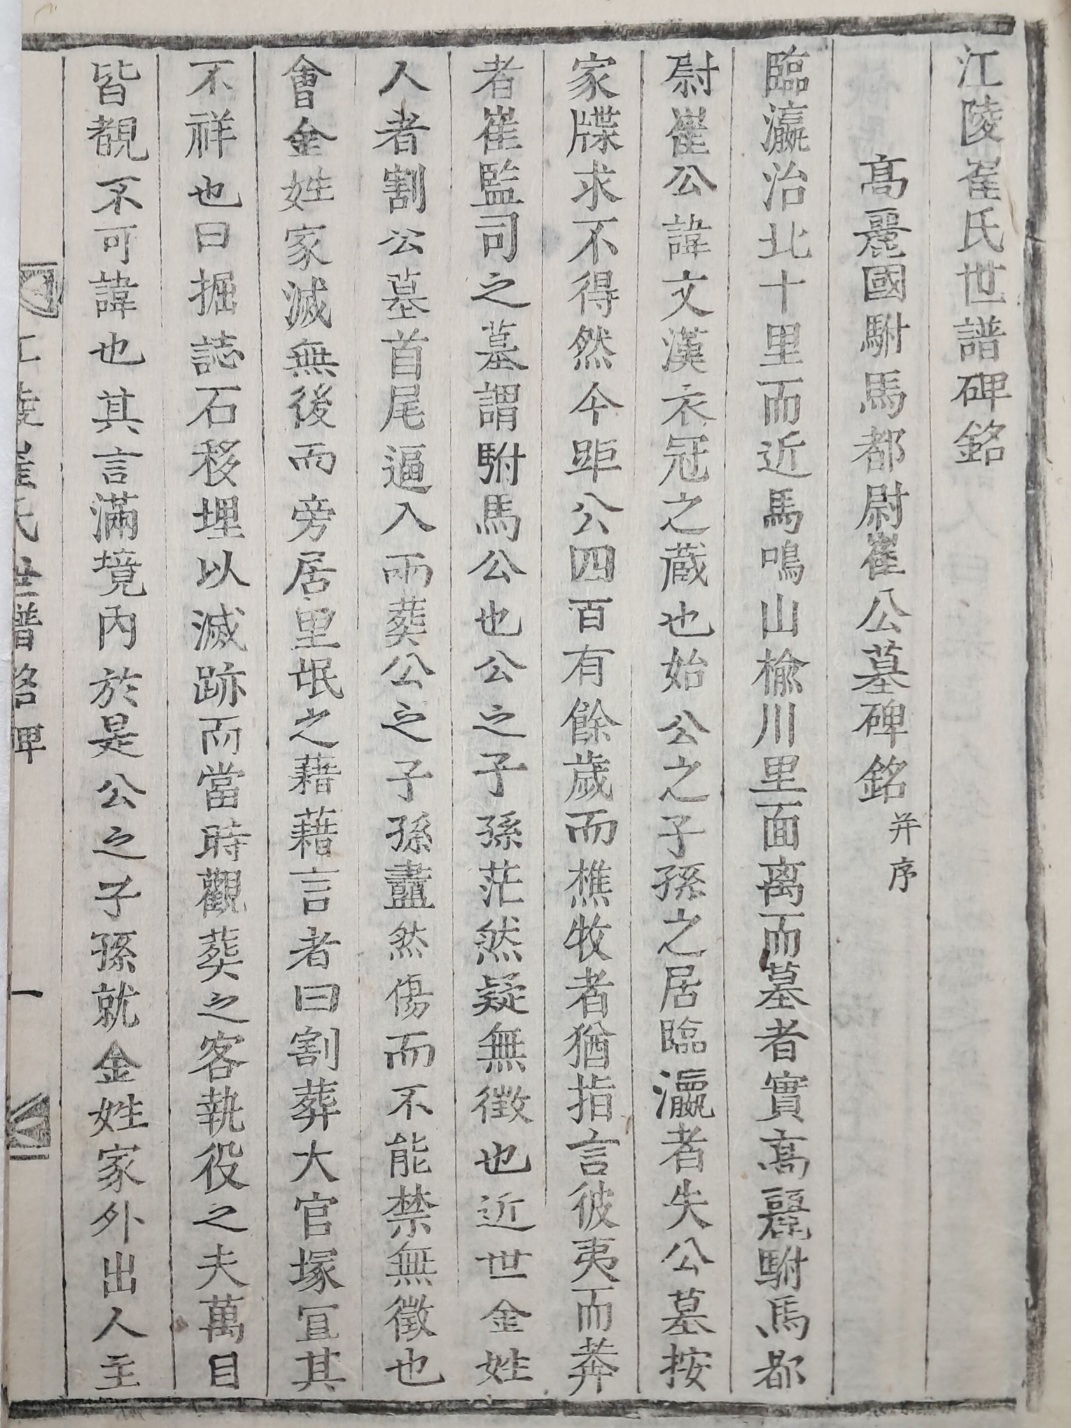 江陵崔氏世譜碑銘
高麗國駙馬都尉崔公墓碑銘 并序
臨瀛治北十里而近馬鳴山楡川里面离而墓者實高麗駙馬都
尉崔公諱文漢衣冠之蔵也始公之子孫之居臨瀛者失公墓按
家牒求不得然今距公四百有餘歲而樵牧者猶指言彼夷而莾
者崔監司之墓謂駙馬公也公之子孫茫然疑無徵也近世金姓
人者割公墓首尾逼入兩葬公之子孫衋然傷而不能禁無徵也
會金姓家滅無後而旁居里氓之藉藉言者曰割葬大官塚冝其
不祥也曰掘誌石移埋以滅跡而當時觀葬之客執役之夫萬目
皆覩不可諱也其言滿境內於是公之子孫就金姓家外出人主
江陵崔氏世譜 碑
一